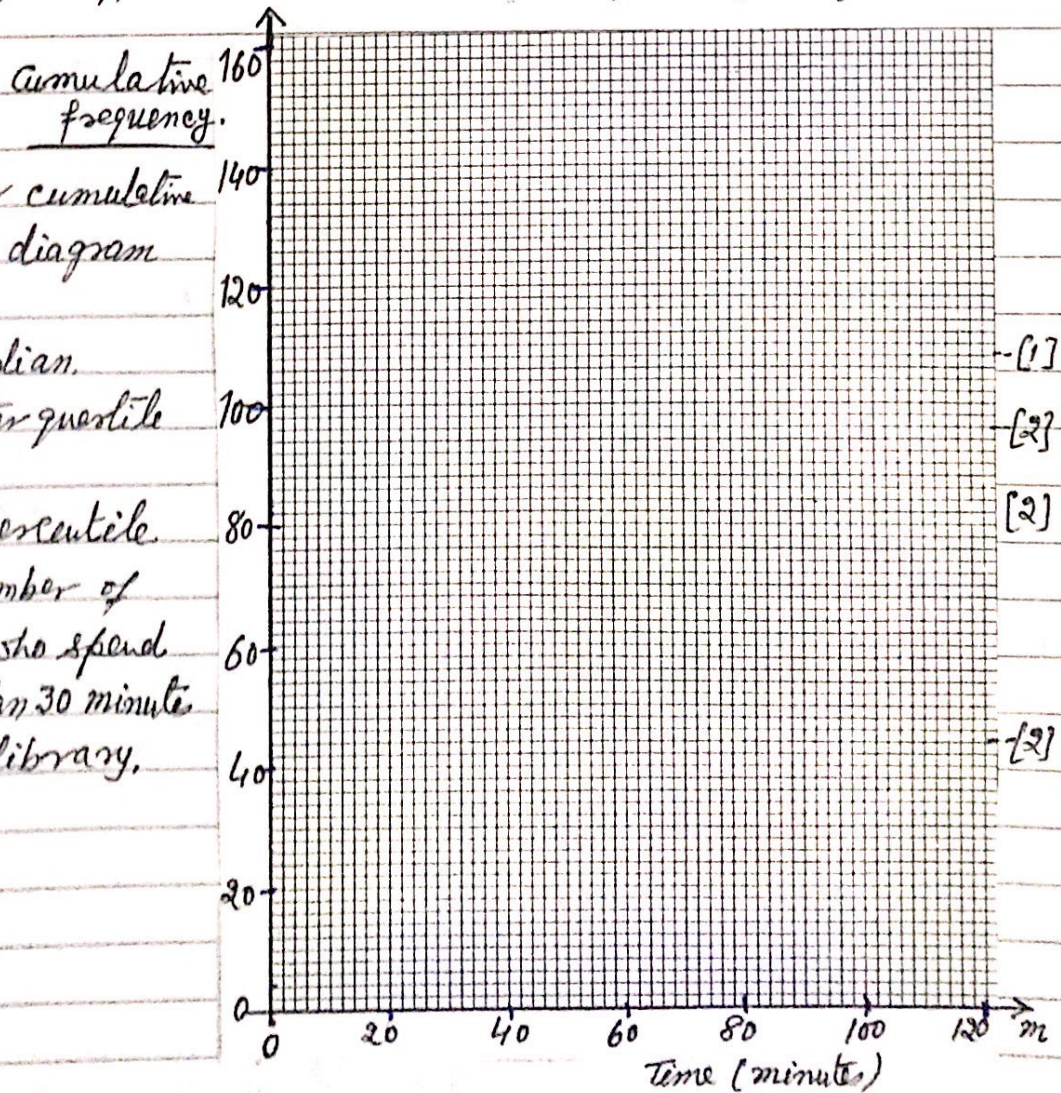 Cumulative
frequency.
cumulative
diagram
lian.
quartile
ercentile
mber of
who spend
an 30 minutes
library.
160
140
120
100
80
60
40
20
0
0 20 40 60 80 100 120 m
Time (minutes)
[1]
[2]
[2]
[2]